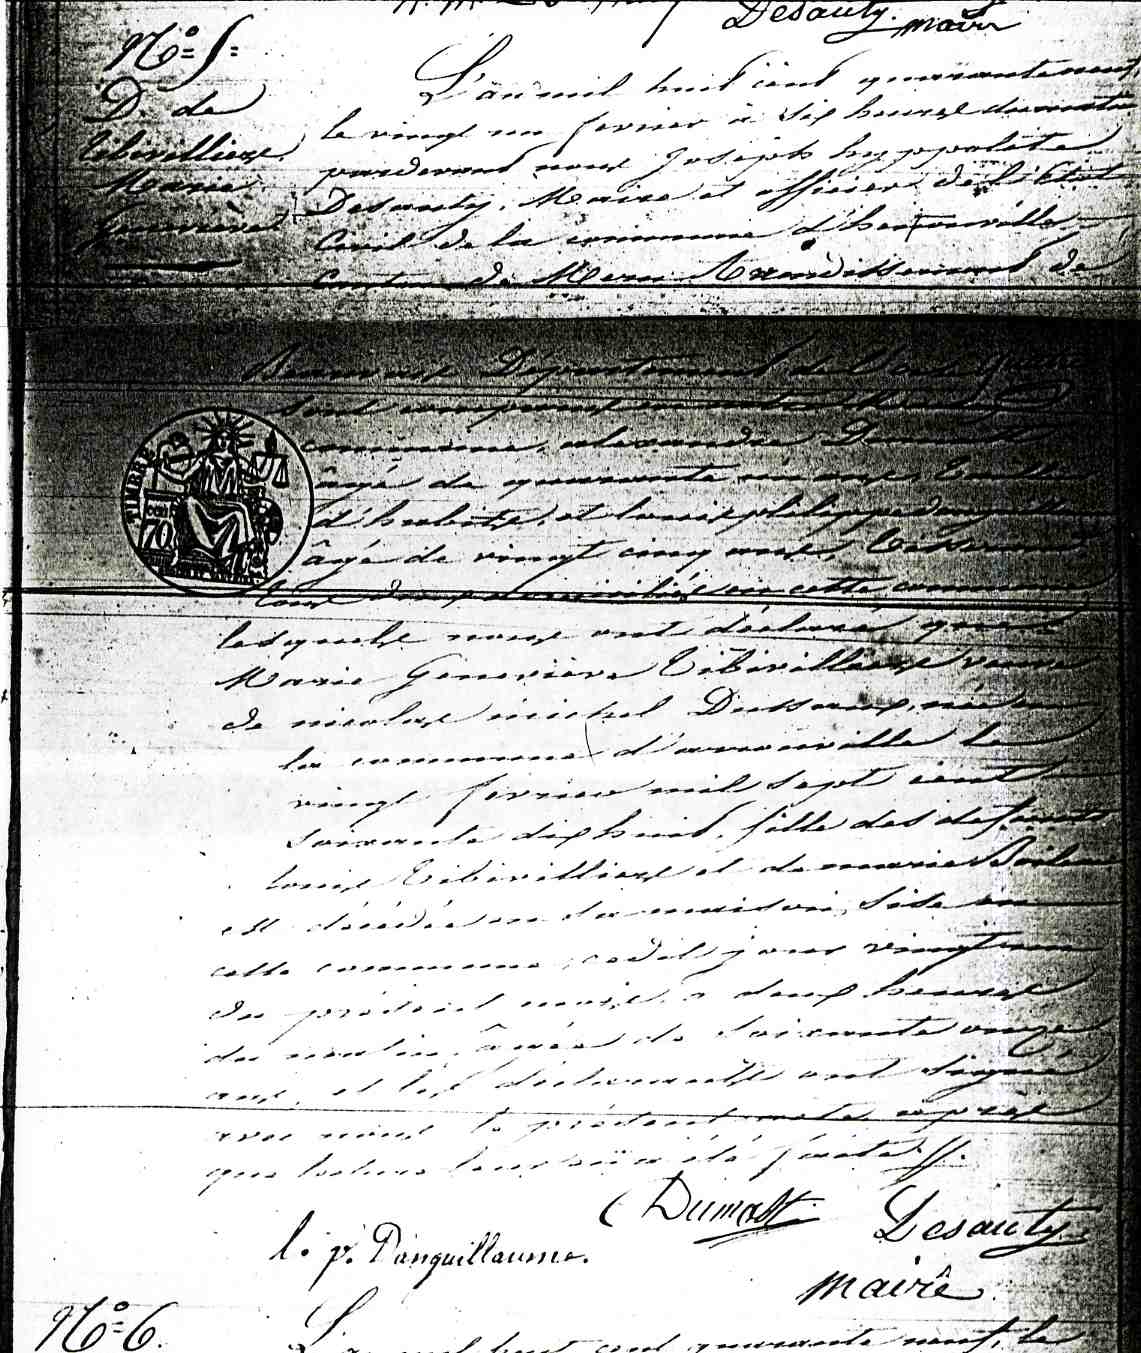 Desauty. mairê
N° 5.
D. de
Tibivilliers
Marie
Geneviève
L'an mil huit cent quarante neuf,
le vingt un fevrier à six heures du matin
pardevant nous Joseph hyppolite
Desauty, Maire et officier de l'état
Civil de la commune d'henonville
Canton de Meru Arrondissement de
Beauvais Département de l'oise
sont comparus
commune, alexandre Dumast
âgé de quarante un ans,
et louis philippe danguillaume
âgé de vingt cinq ans,
tous deux domiciliés en cette commune
lesquels nous ont déclaré que
Marie Geneviève Tibivilliers veuve
de nicolas michel Dussaux, née en
la commune d'arronville le
vingt fevrier mil sept cent
soixante dix huit, fille des defunts
louis Tibivilliers et de marie
est décédée en sa maison, sise en
cette commune, cedit jour vingt un
du présent mois, a deux heures
du matin, âgée de soixante onze
ans, et les déclarants ont signé
avec nous le présent acte après
que lecture leur en a été faite.
TIMBRE
70
Dumast
Desauty
l. p. Danguillaume.
mairê
N° 6.
L'an mil huit cent quarante neuf, le